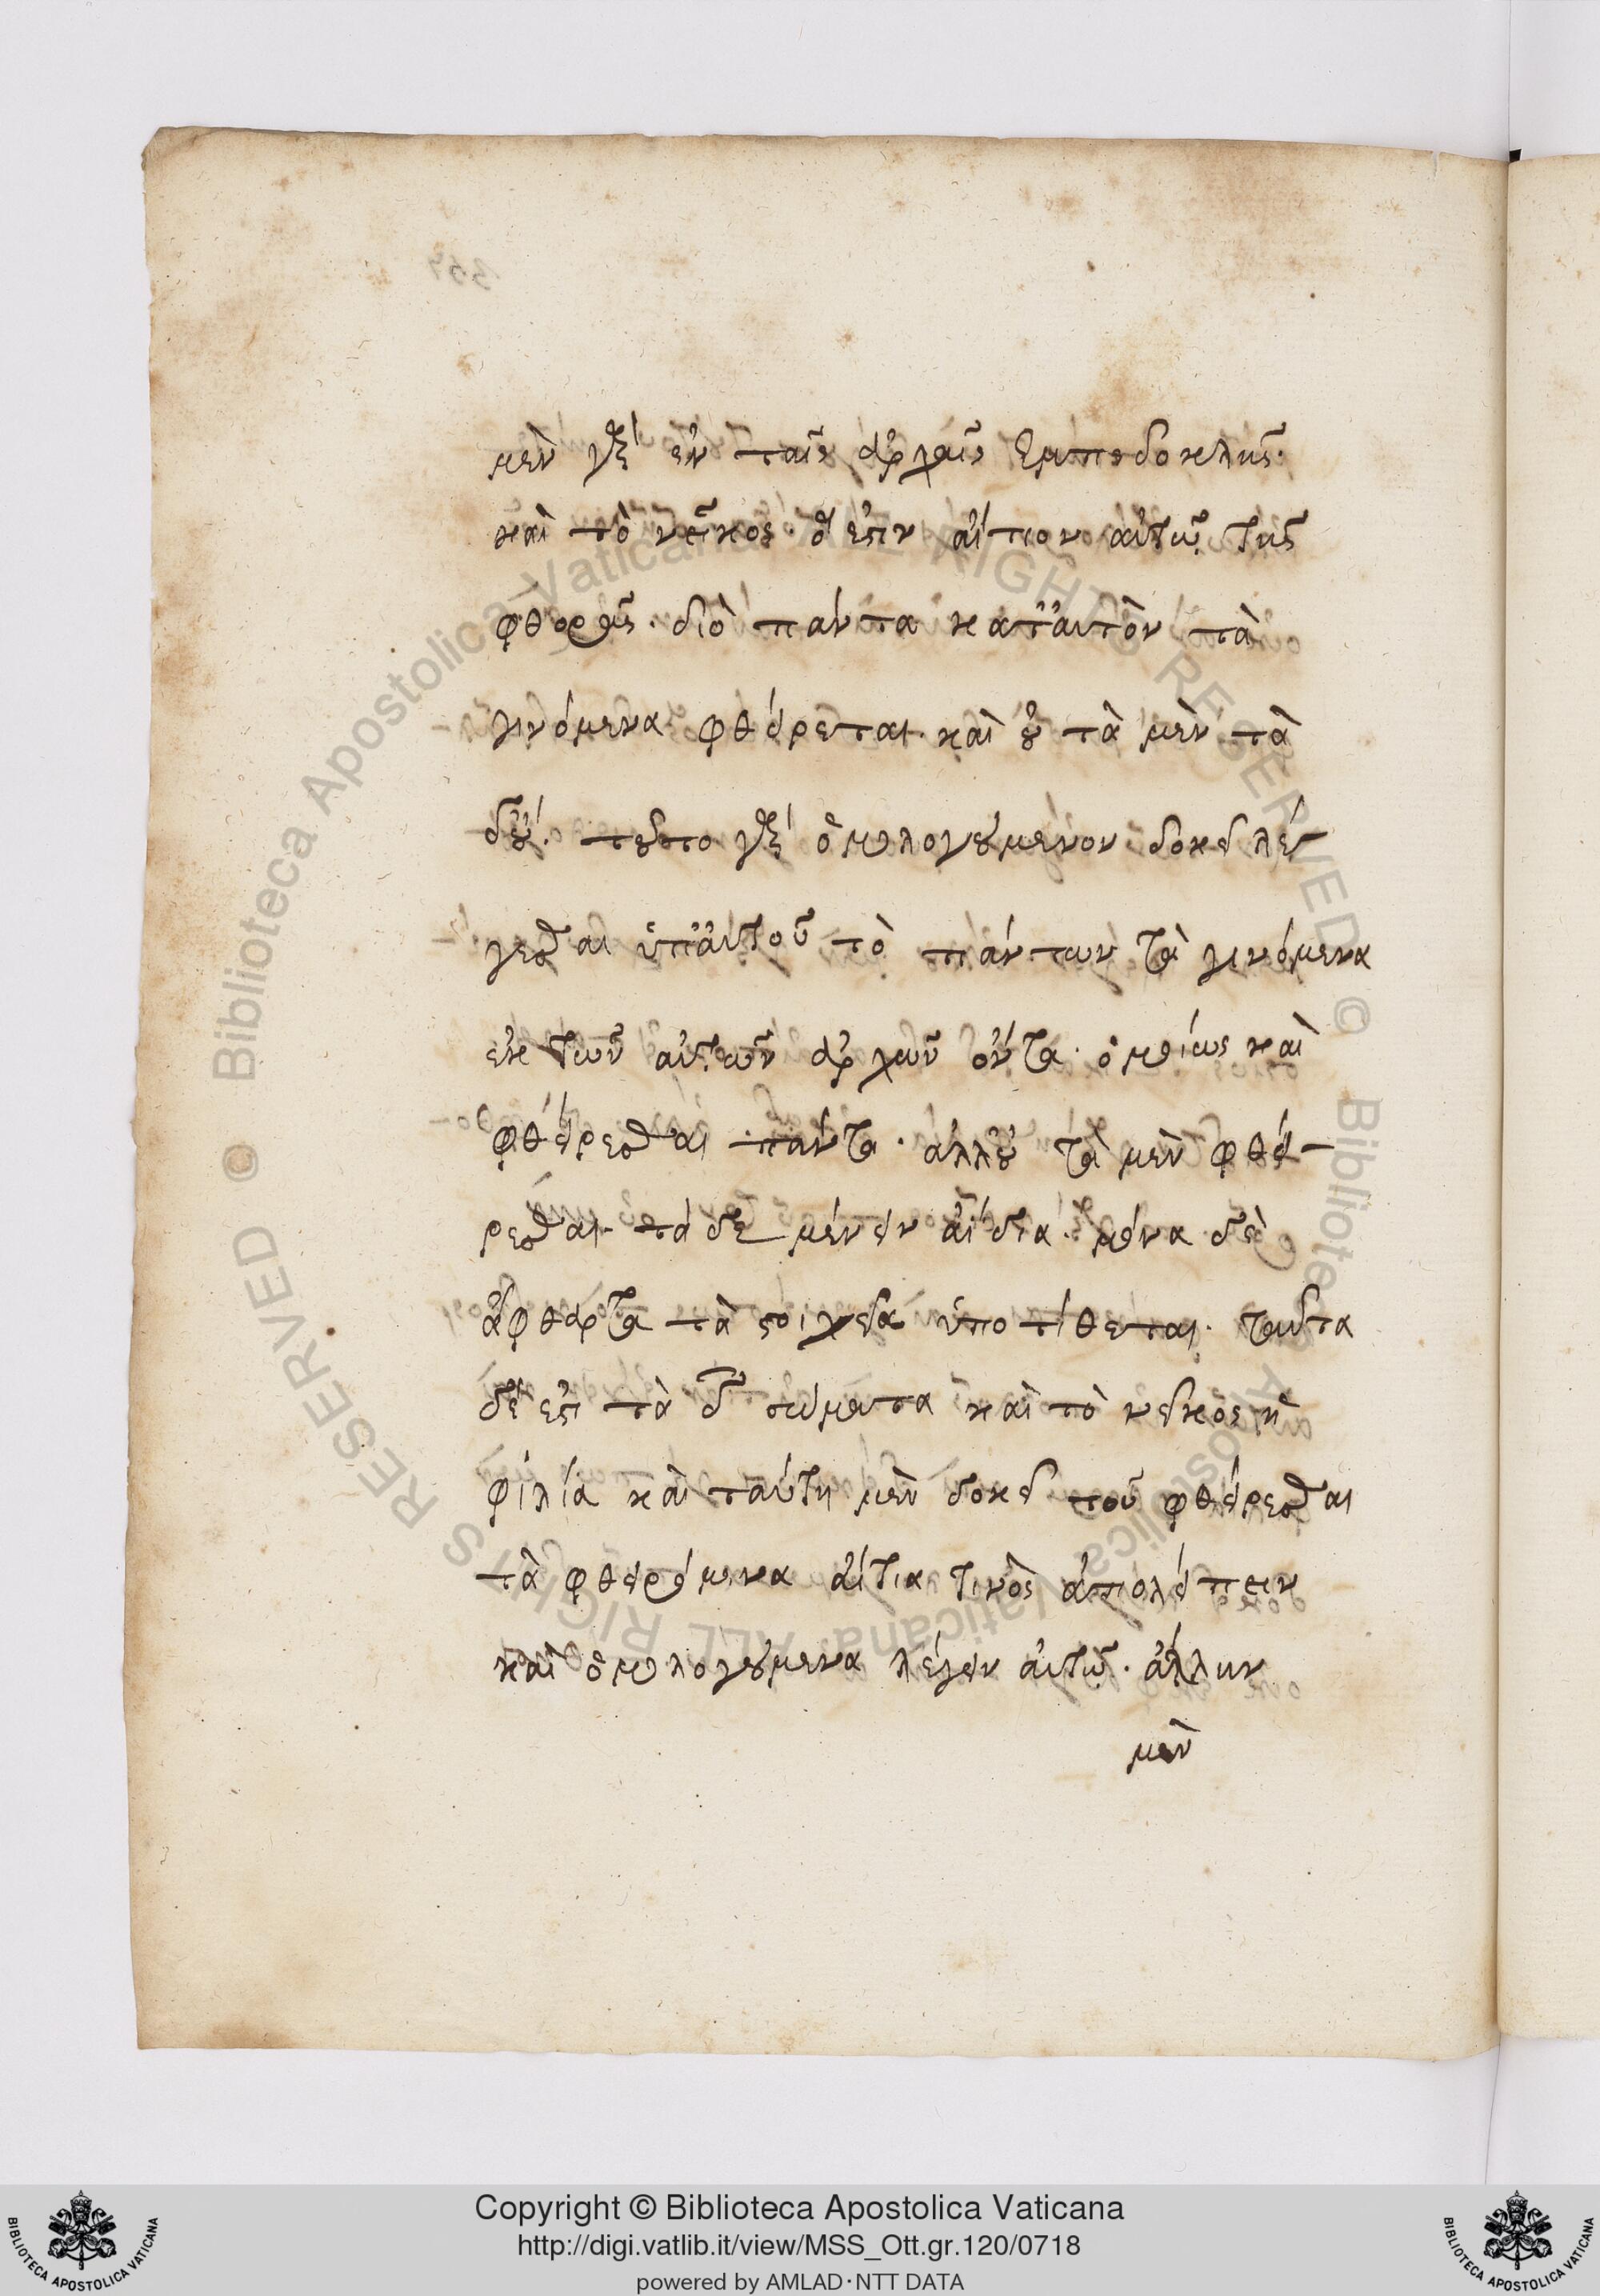 μὲν γὰρ ἐν ταῖς ἀρχαῖς Ἐμπεδοκλῆς·
καὶ τὸ νεῖκος· ὅ ἐστιν αἴτιον αὐτῷ τῆς
φθορᾶς· διὸ πάντα κατ' αὐτὸν τὰ
γινόμενα φθείρεται· καὶ οὐ τὰ μὲν τὰ
δ' οὔ· τοῦτο γὰρ ὁμολογούμενον δοκεῖ λέ-
γεσθαι ὑπ' αὐτοῦ τὸ πάντων τὰ γινόμενα
ἐκ τῶν αὐτῶν ἀρχῶν ὄντα· ὁμοίως καὶ
φθείρεσθαι πάντα· ἀλλ' οὐ τὰ μὲν φθεί-
ρεσθαι· τὰ δὲ μένειν ἀίδια· μόνα δὲ
ἄφθαρτα τὰ στοιχεῖα ὑποτίθεται· ταῦτα
δέ ἐστι τὰ δ σώματα καὶ τὸ νεῖκος ἢ
φιλία καὶ ταύτῃ μὲν δοκεῖ τοῦ φθείρεσθαι
τὰ φθειρόμενα αἴτια τινὸς ἀπολείπειν
καὶ ὁμολογούμενα λέγειν αὐτῷ· ἀλλ' ἦν
μὲν
Copyright © Biblioteca Apostolica Vaticana
http://digi.vatlib.it/view/MSS_Ott.gr.120/0718
powered by AMLAD·NTT DATA
BIBLIOTECA APOSTOLICA VATICANA
BIBLIOTECA APOSTOLICA VATICANA